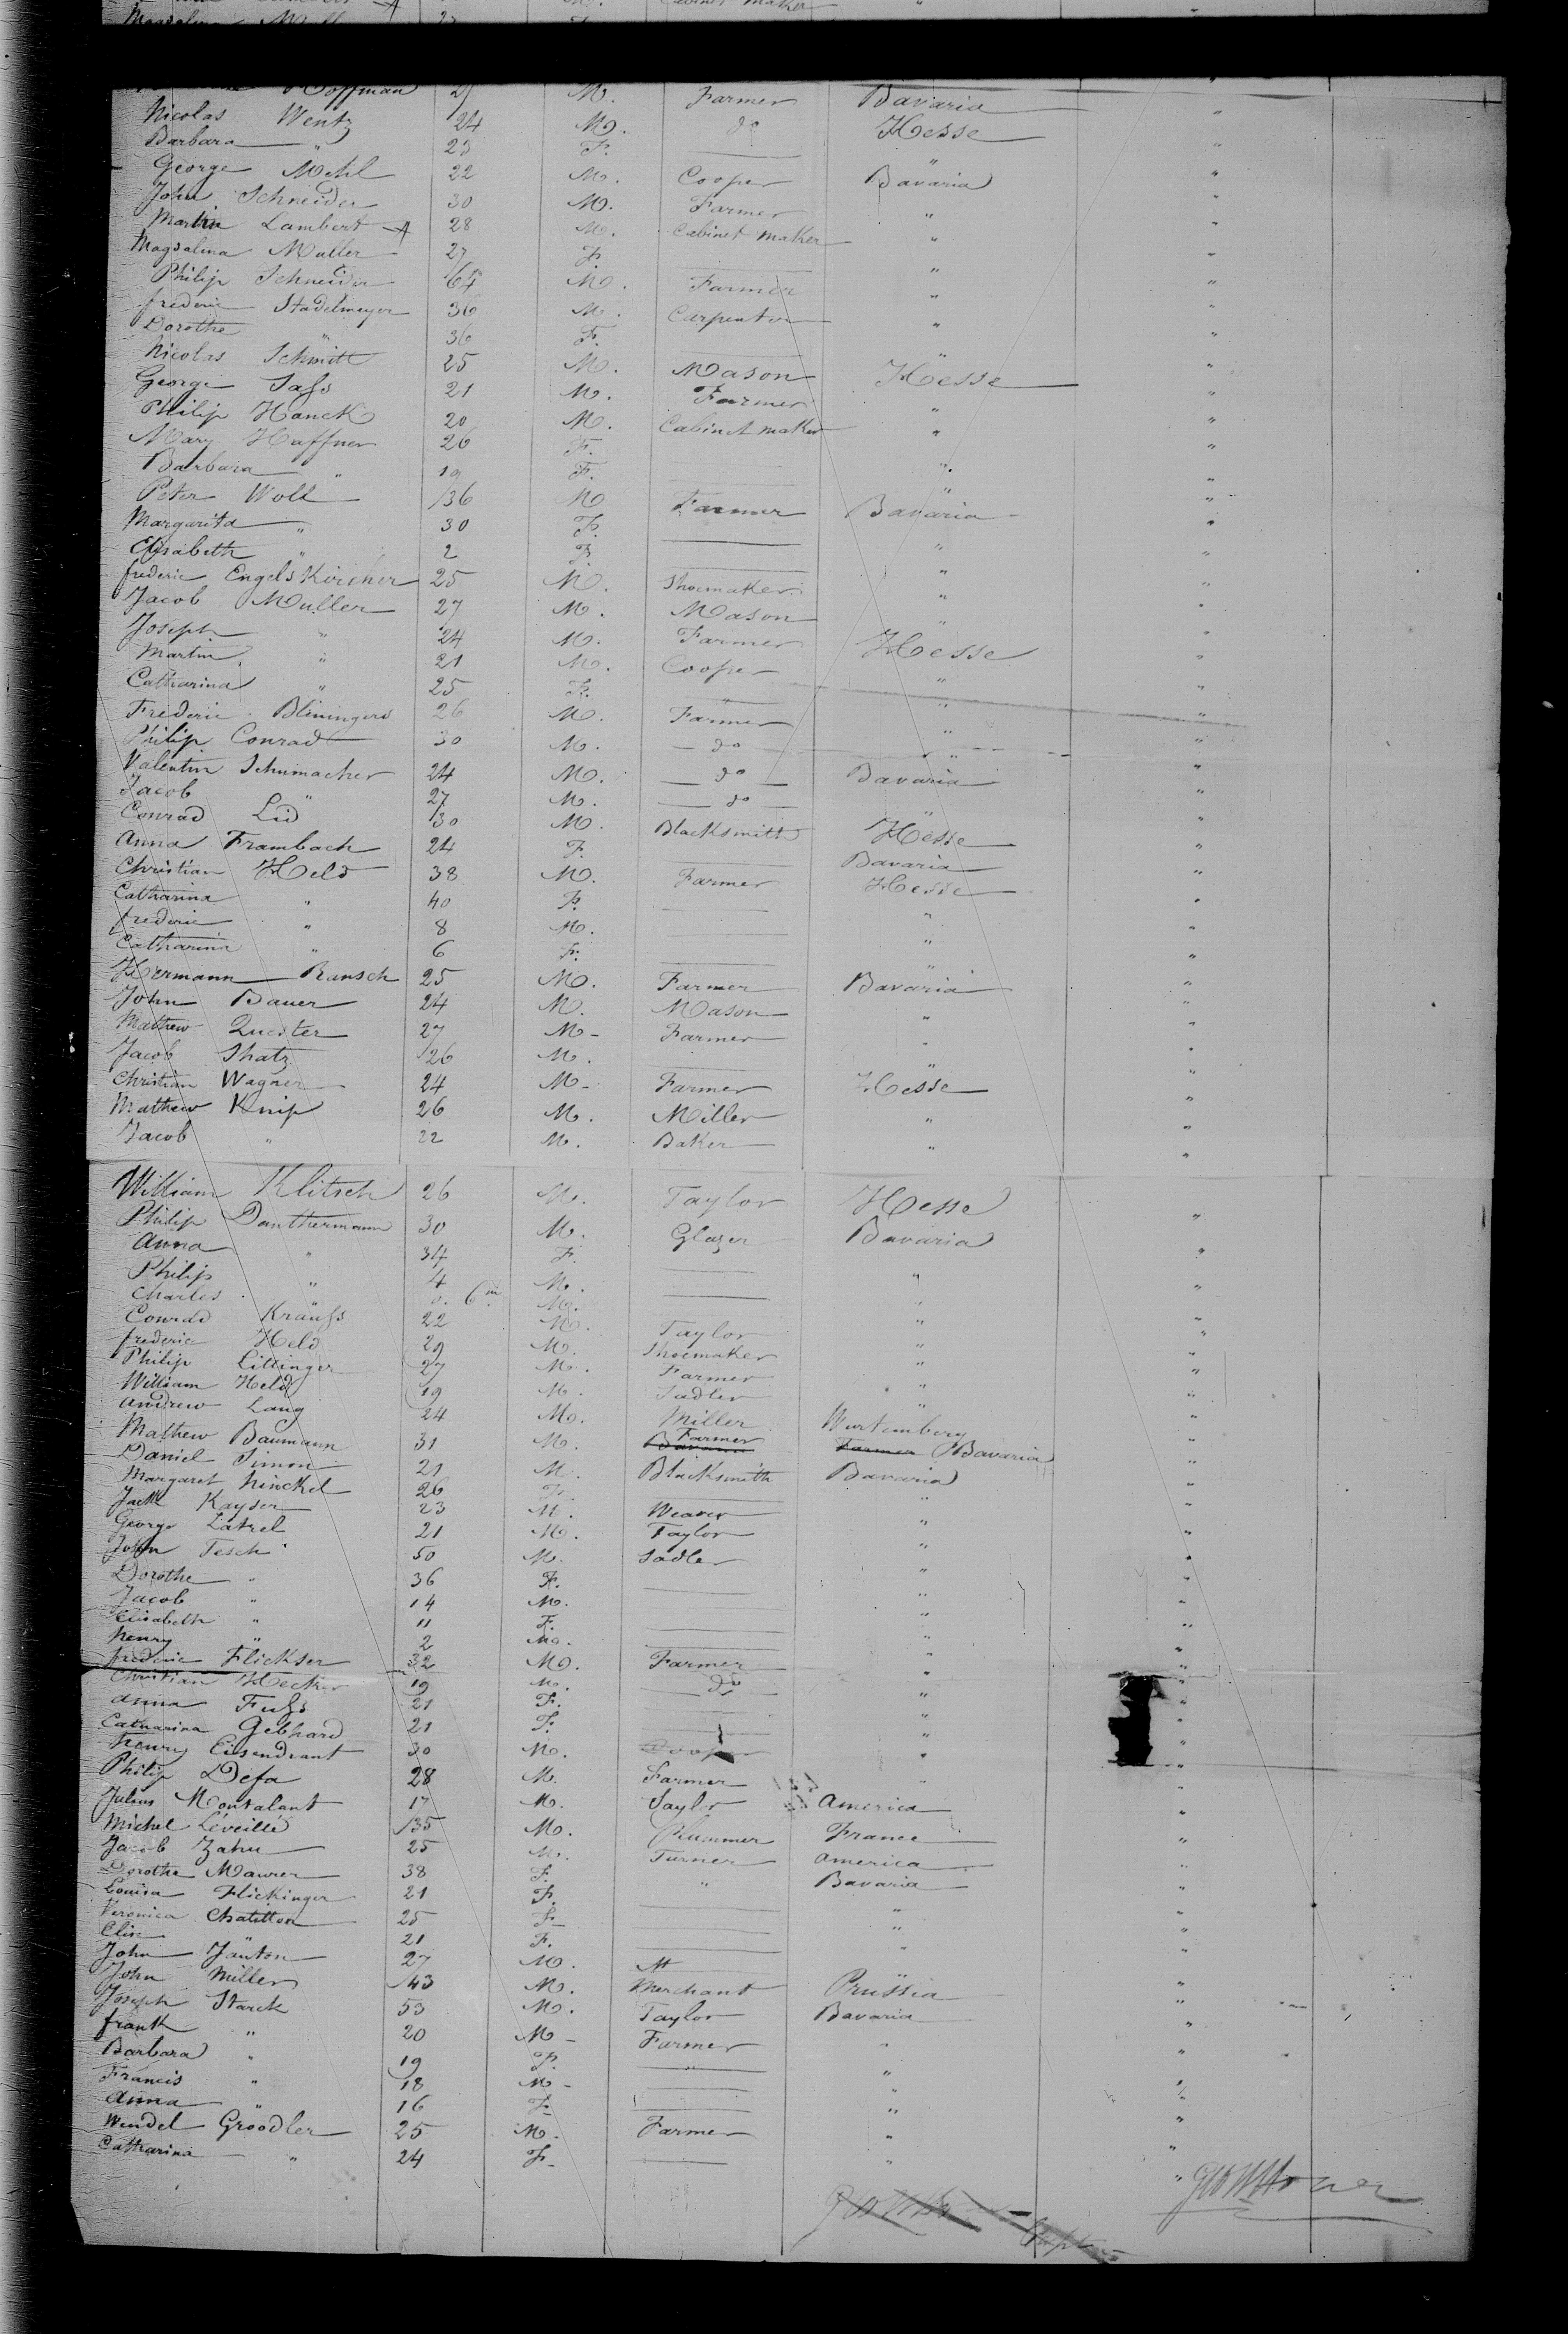 Hoffman M. Farmer Bavaria "
Nicolas Wentz 24 M. do Hesse "
Barbara " 23 F. " "
George Mehl 22 M. Cooper Bavaria "
John Schneider 30 M. Farmer " "
Martin Lambert 28 M. Cabinet maker " "
Magdalena Muller 27 F. " "
Philip Schneider 64 M. Farmer " "
frederic Stadelmeyer 36 M. Carpenter " "
Dorothe " 36 F. " "
Nicolas Schmitt 25 M. Mason Hesse "
George Sass 21 M. Farmer " "
Philip Hanck 20 M. Cabinet maker " "
Mary Haffner 26 F. " "
Barbara " 19 F. " "
Peter Woll 36 M Farmer Bavaria "
Margarita " 30 F. " "
Elisabeth " 2 F. " "
frederic Engelskircher 25 M. Shoemaker " "
Jacob Muller 27 M. Mason " "
Joseph " 24 M. Farmer Hesse "
Martin " 21 M. Cooper " "
Catharina " 25 F. " " "
Frederic 26 M. Farmer " "
Philip Conrad 30 M. do " "
Valentin Schumacher 24 M. do Bavaria "
Jacob " 27 M. do " "
Conrad Lid 30 M. Blacksmith Hesse "
Anna Frambach 24 F. Bavaria "
Christian Held 38 M. Farmer Hesse "
Catharina " 40 F. " "
frederic " 8 M. " "
Catharina " 6 F. " "
Hermann Bausch 25 M. Farmer Bavaria "
John Bauer 24 M. Mason " "
Mathew Quester 27 M- Farmer " "
Jacob Shatz 26 M. " "
Christian Wagner 24 M- Farmer Hesse "
Mathew Knip 26 M. Miller " "
Jacob " 22 M. Baker " "
William Klitsch 26 M. Taylor Hesse "
Philip Danthermann 30 M. Glazer Bavaria "
Anna " 34 F. " "
Philip " 4 M. " "
Charles 0. 6 m M. " "
Conrad Krauss 22 M. Taylor " "
frederic Held 29 M. Shoemaker " "
Philip Littinger 27 M. Farmer " "
William Held 19 M. Sadler " "
Andrew Lang 24 M. Miller Wurtemberg "
Mathew Baumann 31 M. Farmer Bavaria Farmer Bavaria "
Daniel Simon 21 M. Blacksmith Bavaria "
Margaret hinckel 26 F. " "
Kayser 23 M. Weaver " "
George Latrel 21 M. Taylor " "
John Tesch 50 M. Sadler " "
Dorothe " 36 F. " "
Jacob " 14 M. " "
Elisabeth " 11 F. " "
henry " 2 M. " "
frederic Flickser 32 M. Farmer " "
Christian Hecker 19 M. do " "
Anna Fuss 21 F. " "
Catharina Gebhard 21 F. " "
henry Eisendrant 30 M. Cooper " "
Philip Defa 28 M. Farmer " "
Julius Montalant 17 M. Saylor America "
Michel Léveillé 35 M. Plummer France "
Jacob Zahn 25 M. Turner America "
Dorothe Maurer 38 F. " Bavaria "
Louisa Flickinger 21 F. " "
Veronica Chatitton 25 F- " "
Elis 21 F. " "
John Janton 27 M. "
John Miller 43 M. Merchant Prussia "
Joseph Starck 53 M. Taylor Bavaria "
frank " 20 M- Farmer " "
Barbara " 19 F. " " "
Francis " 18 M- " "
Anna " 16 F- " "
Wendel Groodler 25 M. Farmer " "
Catharina " 24 F- " "